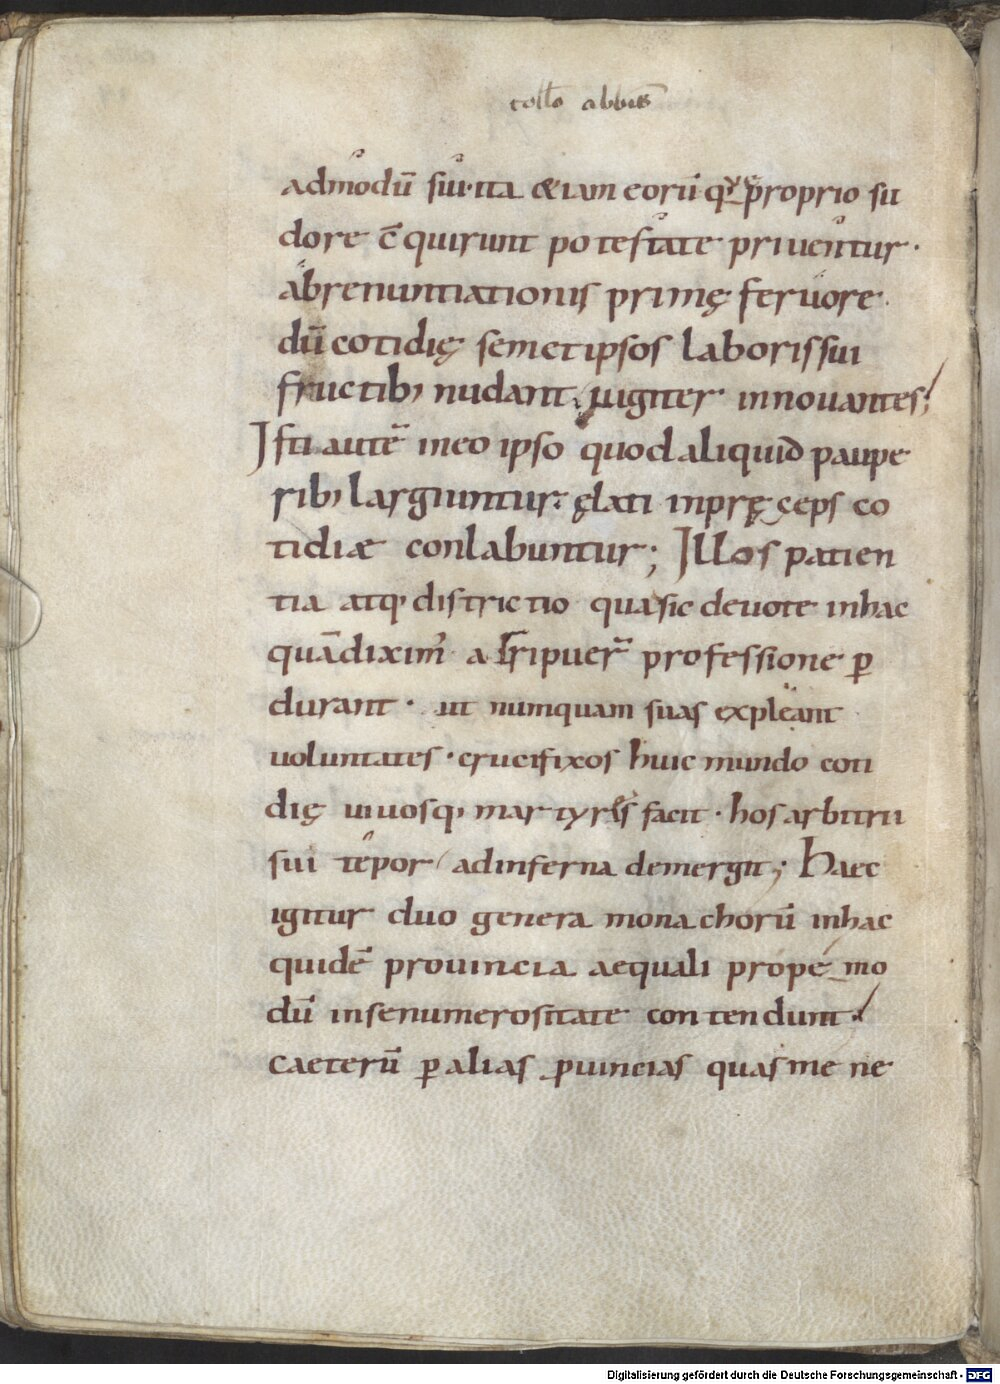 collo abbĩs
admodū sui·ita &iam eorū q̨ proprio su
dore c̄quirunt potestate priuentur·
abrenuntiationis primę feruore
dū cotidię semetipsos laboris sui
fructib; nudant, iugiter innouantes;
Isti autē in eo ipso quod aliquid paupe
rib; largiuntur· ęlati inpręceps co
tidiae conlabuntur; Illos patien
tia atq; districtio qua sic deuote in hac
quā dixim' arripuer̄ professione p̱
durant· ut numquam suas expleant
uoluntates· crucifixos huic mundo coti
dię uiuosq; martyres facit· hos arbitrii
sui tepor ad inferna demergit; Haec
igitur duo genera monachorū in hac
quidē prouincia aequali propemo
dū inse numerositate contendunt·
Caeterū p̱ alias ꝓuincias quas me ne
Digitalisierung gefördert durch die Deutsche Forschungsgemeinschaft - DFG